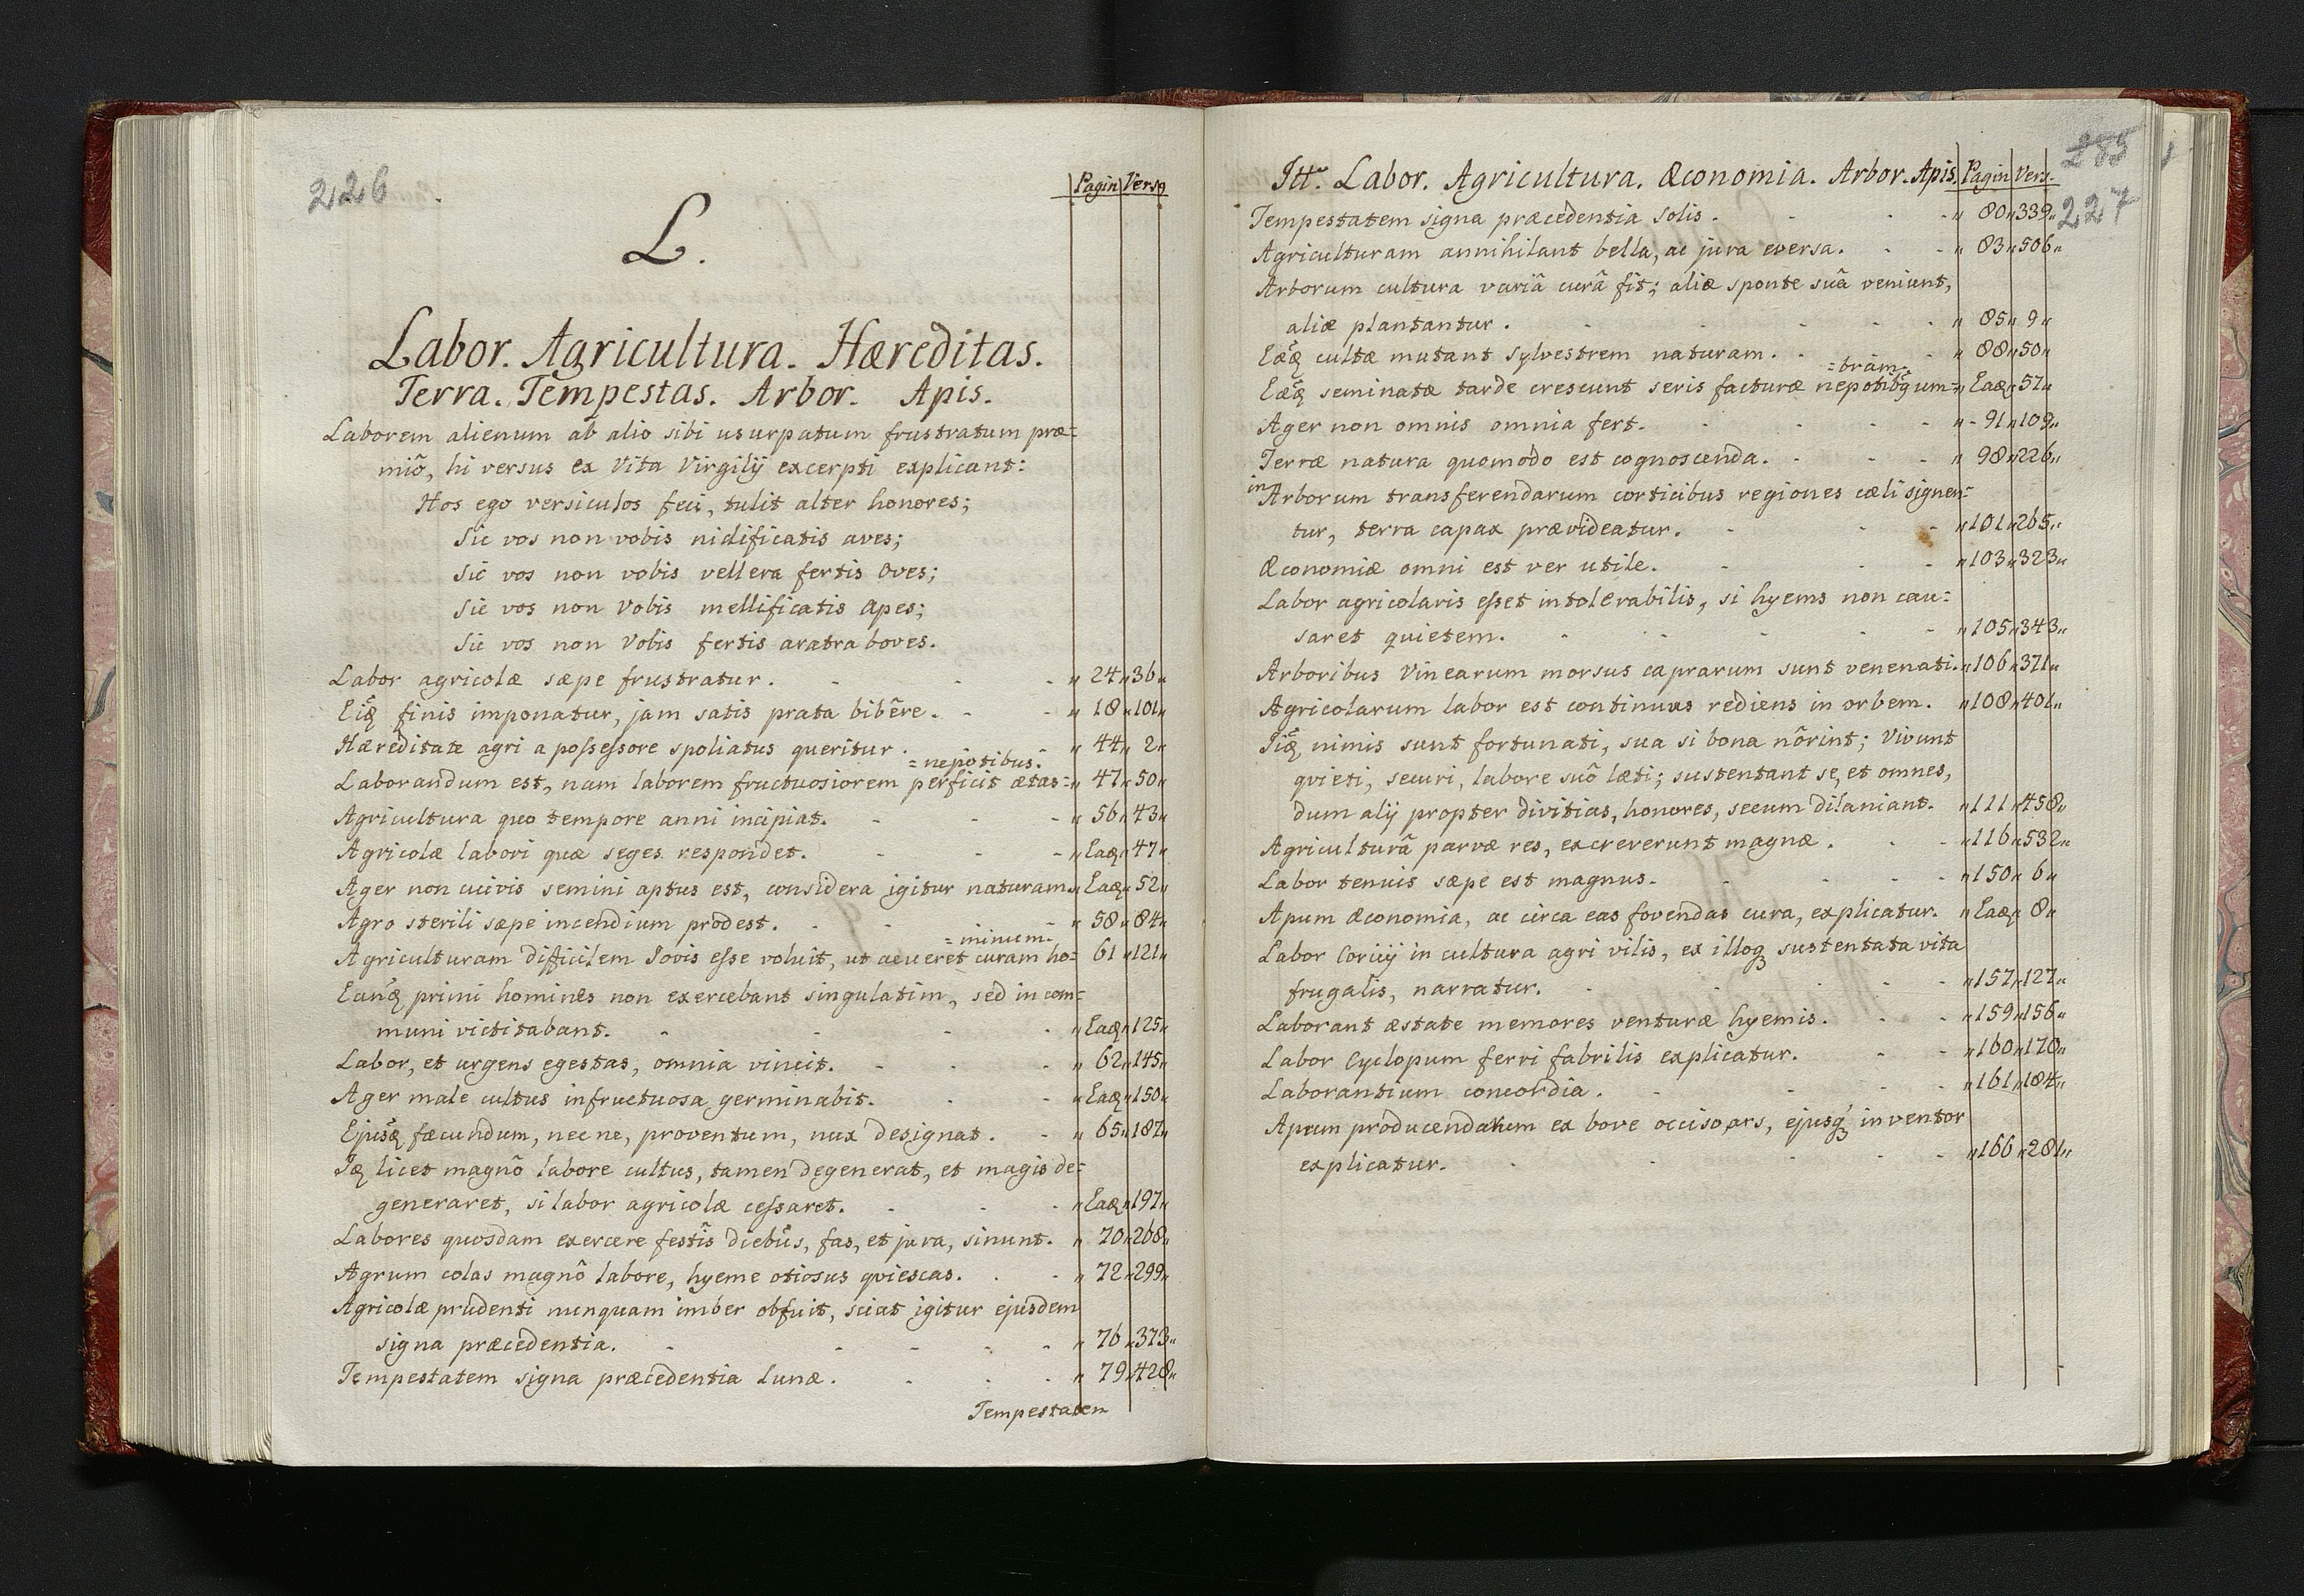 226
Pagin Versq
L.
Labor. Agricultura. Hæreditas.
Terra. Tempestas. Arbor. Apis.
Laborem alienum ab alio sibi usurpatum frustratum præ=
miô, hi versus ex Vita Virgilij excerpti explicant:
Hos ego versiculos feci, tulit alter honores;
Sic vos non vobis nidificatis aves;
Sic vos non vobis vellera fertis oves;
Sic vos non vobis mellificatis apes;
Sic vos non vobis fertis aratra boves.
Labor agricolæ sæpe frustratur. „ 24 „ 36 „
Eiq finis imponatur, jam satis prata bibêre. „ 18 „ 101 „
Hæreditate agri a possessore spoliatus queritur. „ 44 „ 2 „
=nepotibus.
Laborandum est, nam laborem fructuosiorem perficit ætas= „ 47 „ 50 „
Agricultura quo tempore anni incipiat. „ 56 „ 43 „
Agricolæ labori quæ seges respondet. „ Eaq „ 47 „
Ager non cuivis semini aptus est, considera igitur naturam. „ Eaq „ 52 „
Agro sterili sæpe incendium prodest. „ 58 „ 84 „
=minum.
Agriculturam difficilem Jovis esse voluit, ut acueret curam ho= 61 „ 121 „
Eanq primi homines non exercebant singulatim, sed in com=
muni victitabant. „ Eaq „ 125 „
Labor, et urgens egestas, omnia vincit. „ 62 „ 145 „
Ager male cultus infructuosa germinabit. „ Eaq „ 150 „
Ejusq fæcundum, nec ne, proventum, nux designat. „ 65 „ 187 „
Iq licet magnô labore cultus, tamen degenerat, et magis de=
generaret, si labor agricolæ cessaret. „ Eaq „ 197 „
Labores quosdam exercere festis diebus, fas, et jura, sinunt. „ 70 „ 268 „
Agrum colas magnô labore, hyeme otiosus qviescas. „ 72 „ 299 „
Agricolæ prudenti nunquam imber obfuit, sciat igitur ejusdem
signa præcedentia. „ 76 „ 373 „
Tempestatem signa præcedentia Lunæ. „ 79 „ 428 „
Tempestatem
285
227
Itt. Labor. Agricultura. Œconomia. Arbor. Apis. Pagin Vers.
Tempestatem signa præcedentia Solis. „ 80 „ 339 „
Agriculturam annihilant bella, ac jura eversa. „ 83 „ 506 „
Arborum cultura variâ curâ fit; aliæ sponte suâ veniunt,
aliæ plantantur. „ 85 „ 9 „
Eæq cultæ mutant sylvestrem naturam. „ 88 „ 50 „
=bram.
Eæq seminatæ tarde crescunt seris facturæ nepotibq um= „ Eaq „ 57 „
Ager non omnis omnia fert. „ 91 „ 109 „
Terræ natura quomodo est cognoscenda. „ 98 „ 226 „
in Arborum transferendarum corticibus regiones cæli signen=
tur, terra capax prævideatur. „ 101 „ 265 „
Œconomiæ omni est ver utile. „ 103 „ 323 „
Labor agricolaris esset intolerabilis, si hyems non cau=
saret quietem. „ 105 „ 343 „
Arboribus Vinearum morsus caprarum sunt venenati. „ 106 „ 371 „
Agricolarum labor est continuus rediens in orbem. „ 108 „ 401 „
Iiq nimis sunt fortunati, sua si bona nôrint; Vivunt
qvieti, securi, labore suô læti; sustentant se, et omnes,
dum alij propter divitias, honores, secum dilaniant. „ 111 „ 458 „
Agriculturâ parvæ res, excreverunt magnæ. „ 116 „ 532 „
Labor tenuis sæpe est magnus. „ 150 „ 6 „
Apum œconomia, ac circa eas fovendas cura, explicatur. „ Eaq „ 8 „
Labor Coricij in cultura agri vilis, ex illoq sustentata vita
frugalis, narratur. „ 157 „ 127 „
Laborant æstate memores venturæ hyemis. „ 159 „ 156 „
Labor Cyclopum ferri fabrilis explicatur. „ 160 „ 170 „
Laborantium concordia. „ 161 „ 184 „
Apum producendarum ex bove occiso ars, ejusq inventor
explicatur. „ 166 „ 281 „